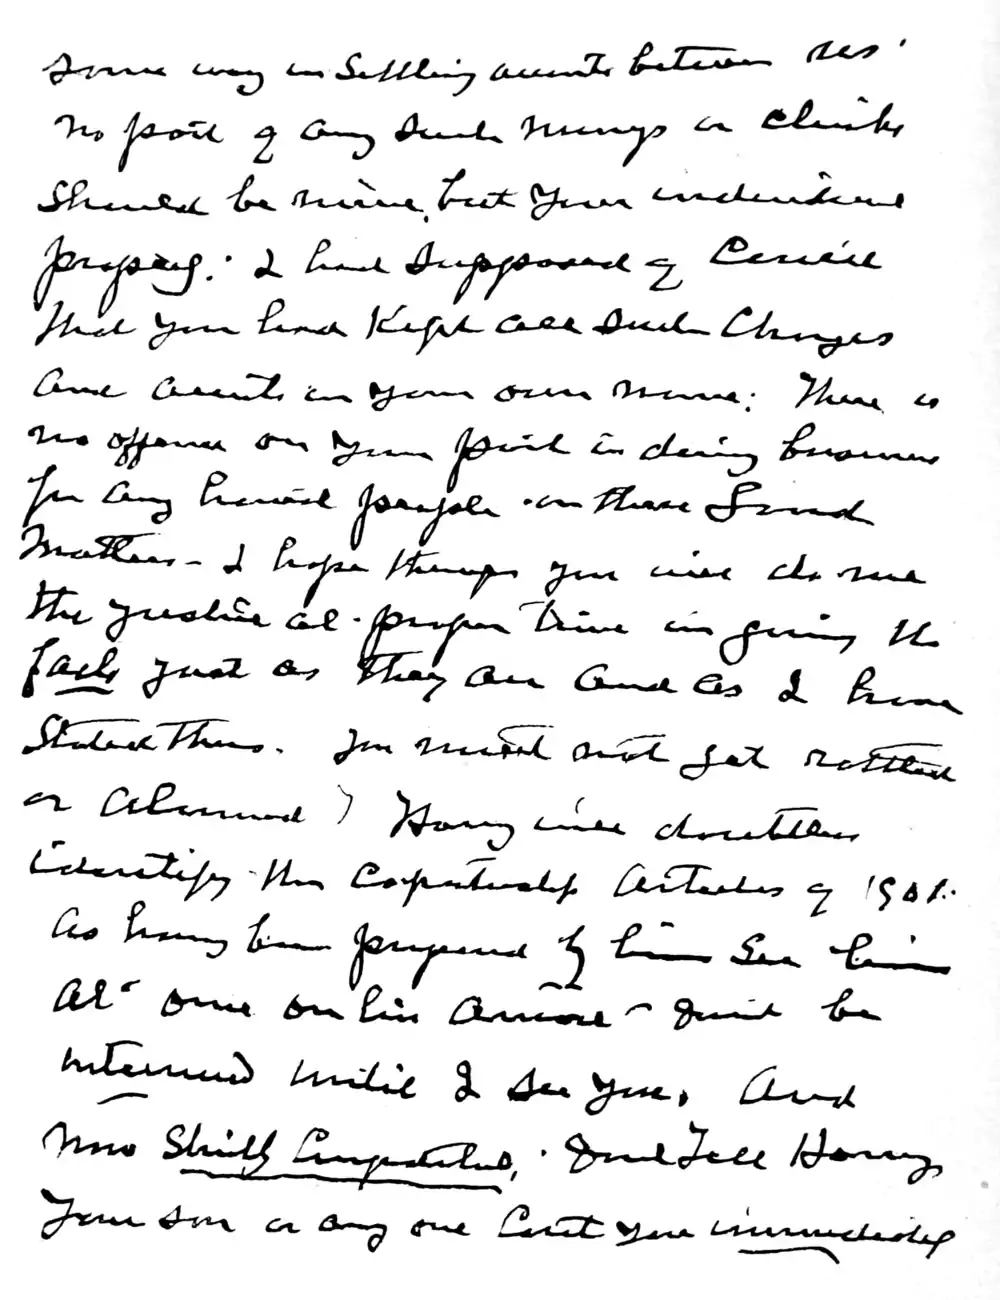 some way in settling accounts between us
no part of any such moneys or checks
should be mine, but your individual
property: I had supposed of course
that you had kept all such charges
and accounts in your own name: There is
no offense on your part in doing business
for any honest people in these Land
Matters - I hope though you will do me
the justice at proper time in giving the
facts just as they are and as I have
stated them. You must not get rattled
or alarmed) Harry will doubtless
identify the copartnership Articles of 1901.
As having been prepared by him See him
at once on his arrival - Don't be
interviewed until I see you, And
now Strictly Confidential, Dont Tell Harry
Your son or any one but you immediately